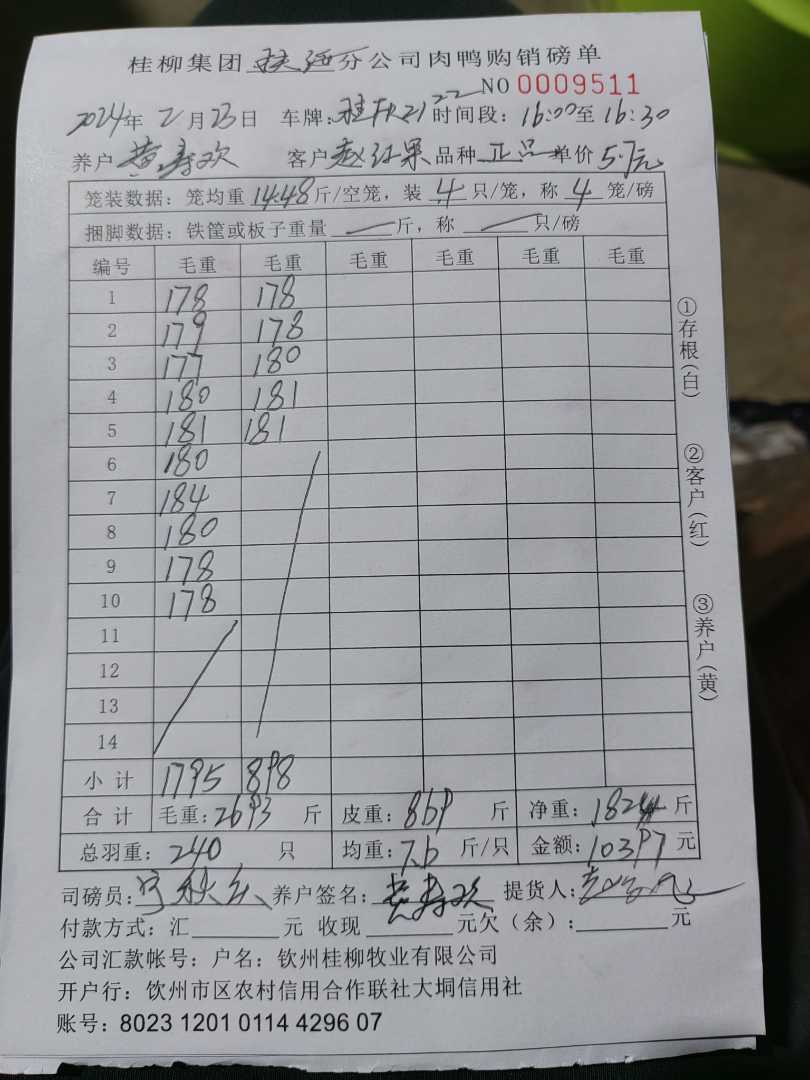 桂柳集团钦海分公司肉鸭购销磅单
NO 0009511
2024年2月23日 车牌: 时间段: 16:00至16:30
养户 黄寿欢 客户 赵红果 品种 正品 单价 5.7元
笼装数据: 笼均重 14.48 斤/空笼, 装 4 只/笼, 称 4 笼/磅
捆脚数据: 铁筐或板子重量 — 斤, 称 — 只/磅
编号 毛重 毛重 毛重 毛重 毛重 毛重
1 178 178
2 179 178
3 177 180
4 180 181
5 181 181
6 180
7 184
8 180
9 178
10 178
11
12
13
14
小计 1795 898
合计 毛重: 2693 斤 皮重: 869 斤 净重: 1824 斤
总羽重: 240 只 均重: 7.6 斤/只 金额: 10397 元
司磅员: 养户签名: 黄寿欢 提货人:
付款方式: 汇 元 收现 元欠(余): 元
公司汇款帐号: 户名: 钦州桂柳牧业有限公司
开户行: 钦州市区农村信用合作联社大垌信用社
账号: 8023 1201 0114 4296 07
①存根(白)
②客户(红)
③养户(黄)